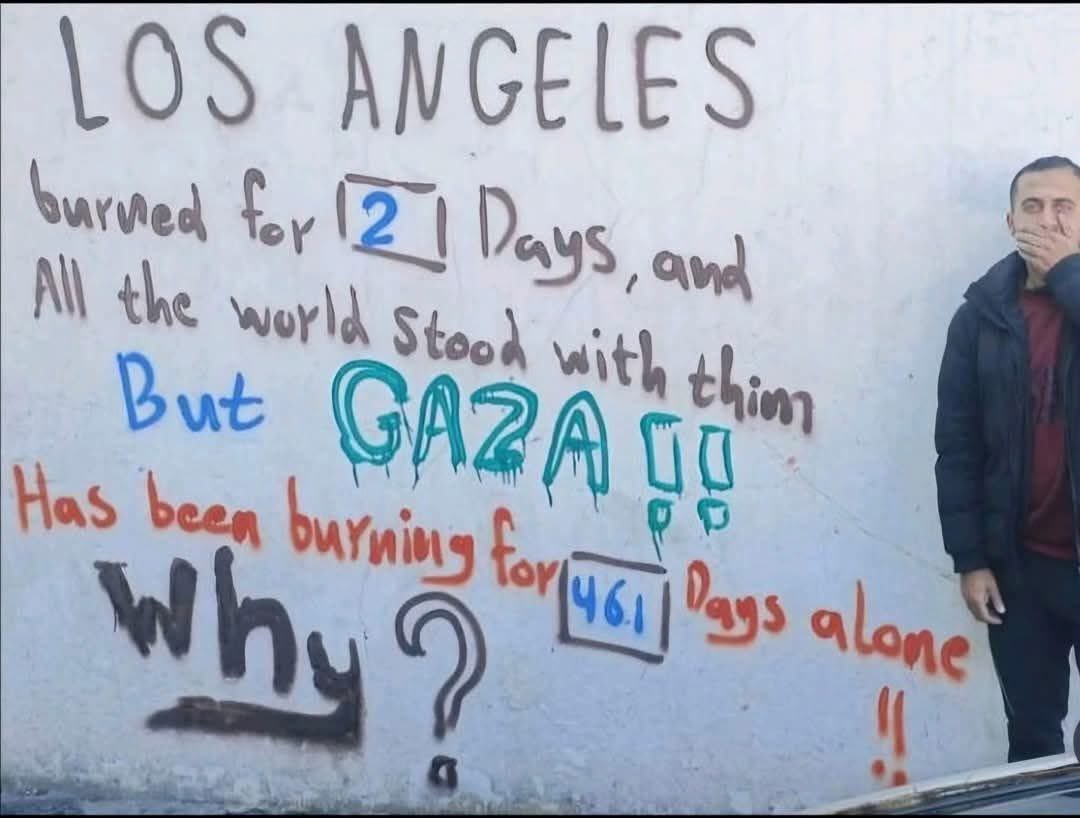 LOS ANGELES
burned for 2 Days, and
All the world Stood with thim
But GAZA !!
Has been burning for 461 Days alone !!
Why ?